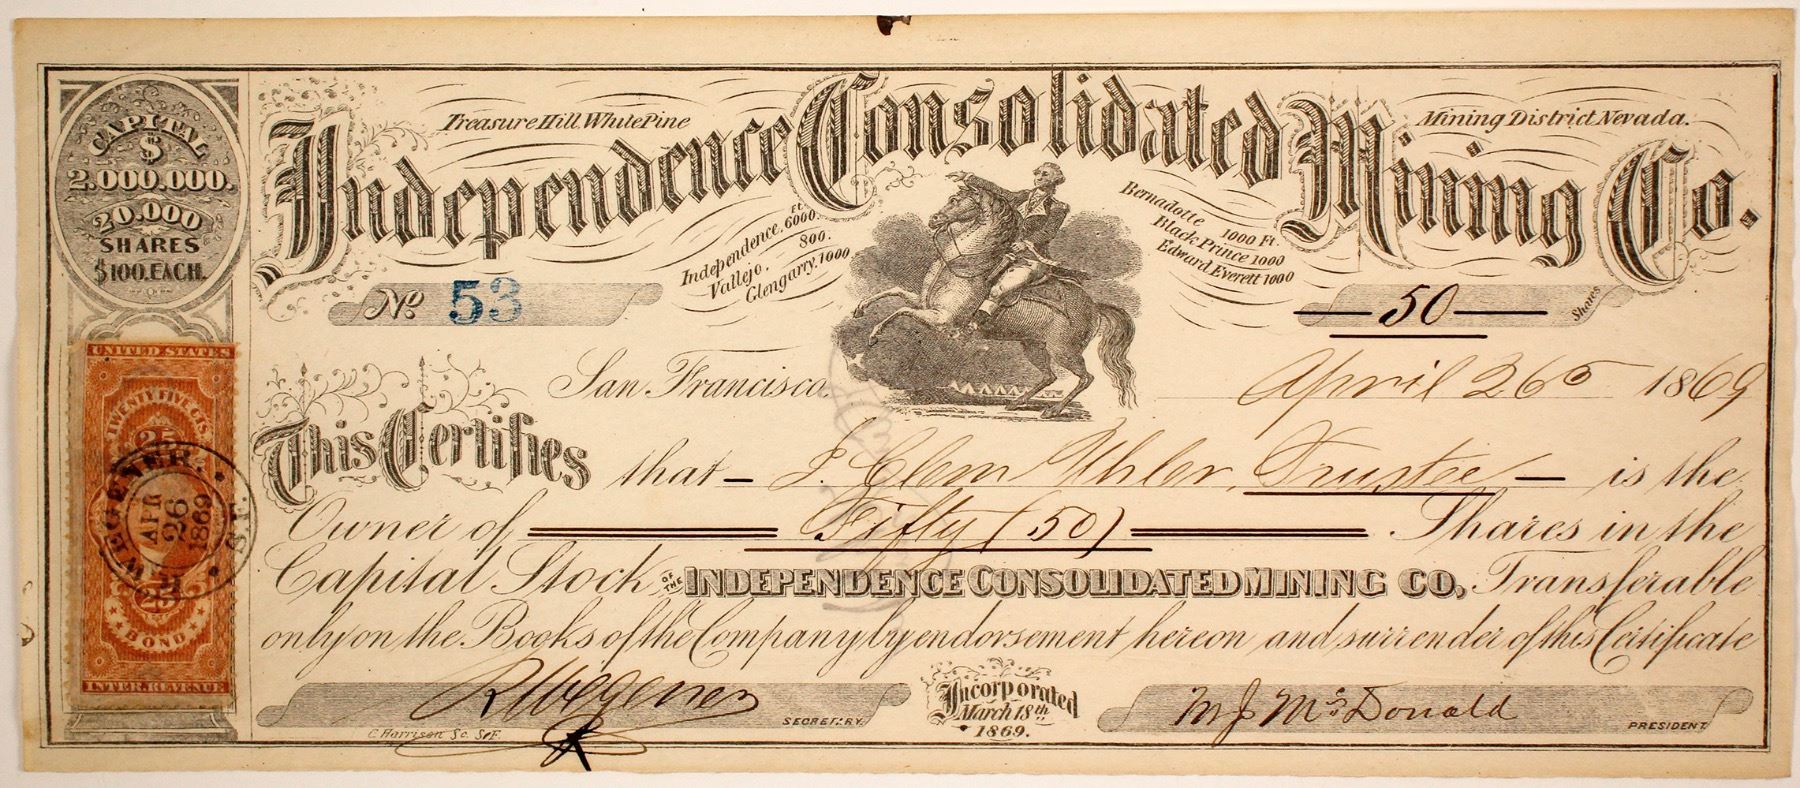 CAPITAL
$
2.000.000.
20.000
SHARES
$100. EACH.
Treasure Hill White Pine
Mining District Nevada.
Independence Consolidated Mining Co.
Independence. 6000 ft
Vallejo. 800.
Glengarry. 1000
Bernadotte 1000 Ft.
Black Prince 1000
Edward Everett 1000
No. 53
50 Shares
San Francisco April 26th 1869
This Certifies that J. Clem Uhler, Trustee is the
Owner of Fifty (50) Shares in the
Capital Stock OF THE INDEPENDENCE CONSOLIDATED MINING CO, Transferable
only on the Books of the Company by endorsement hereon and surrender of this Certificate
R Wegener
SECRETARY
Incorporated
March 18th
1869.
M J McDonald
PRESIDENT
C. Harrison Sc. S.F.
UNITED STATES
TWENTY FIVE CTS.
25
WEGENER
APR
26
1869
S.F.
25
BOND
INTER. REVENUE